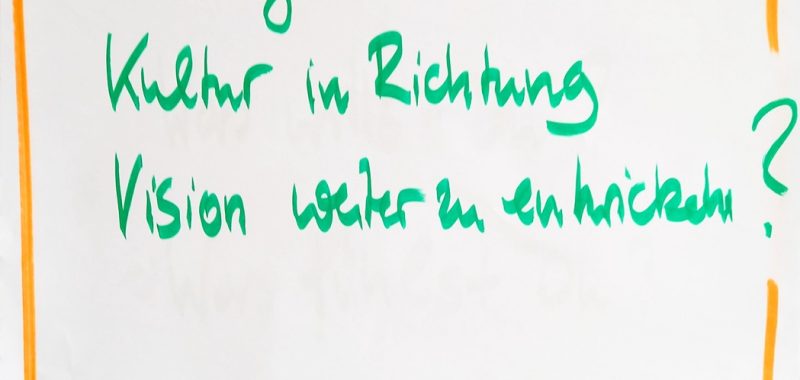 Kultur in Richtung
Vision weiter zu entwickeln ?